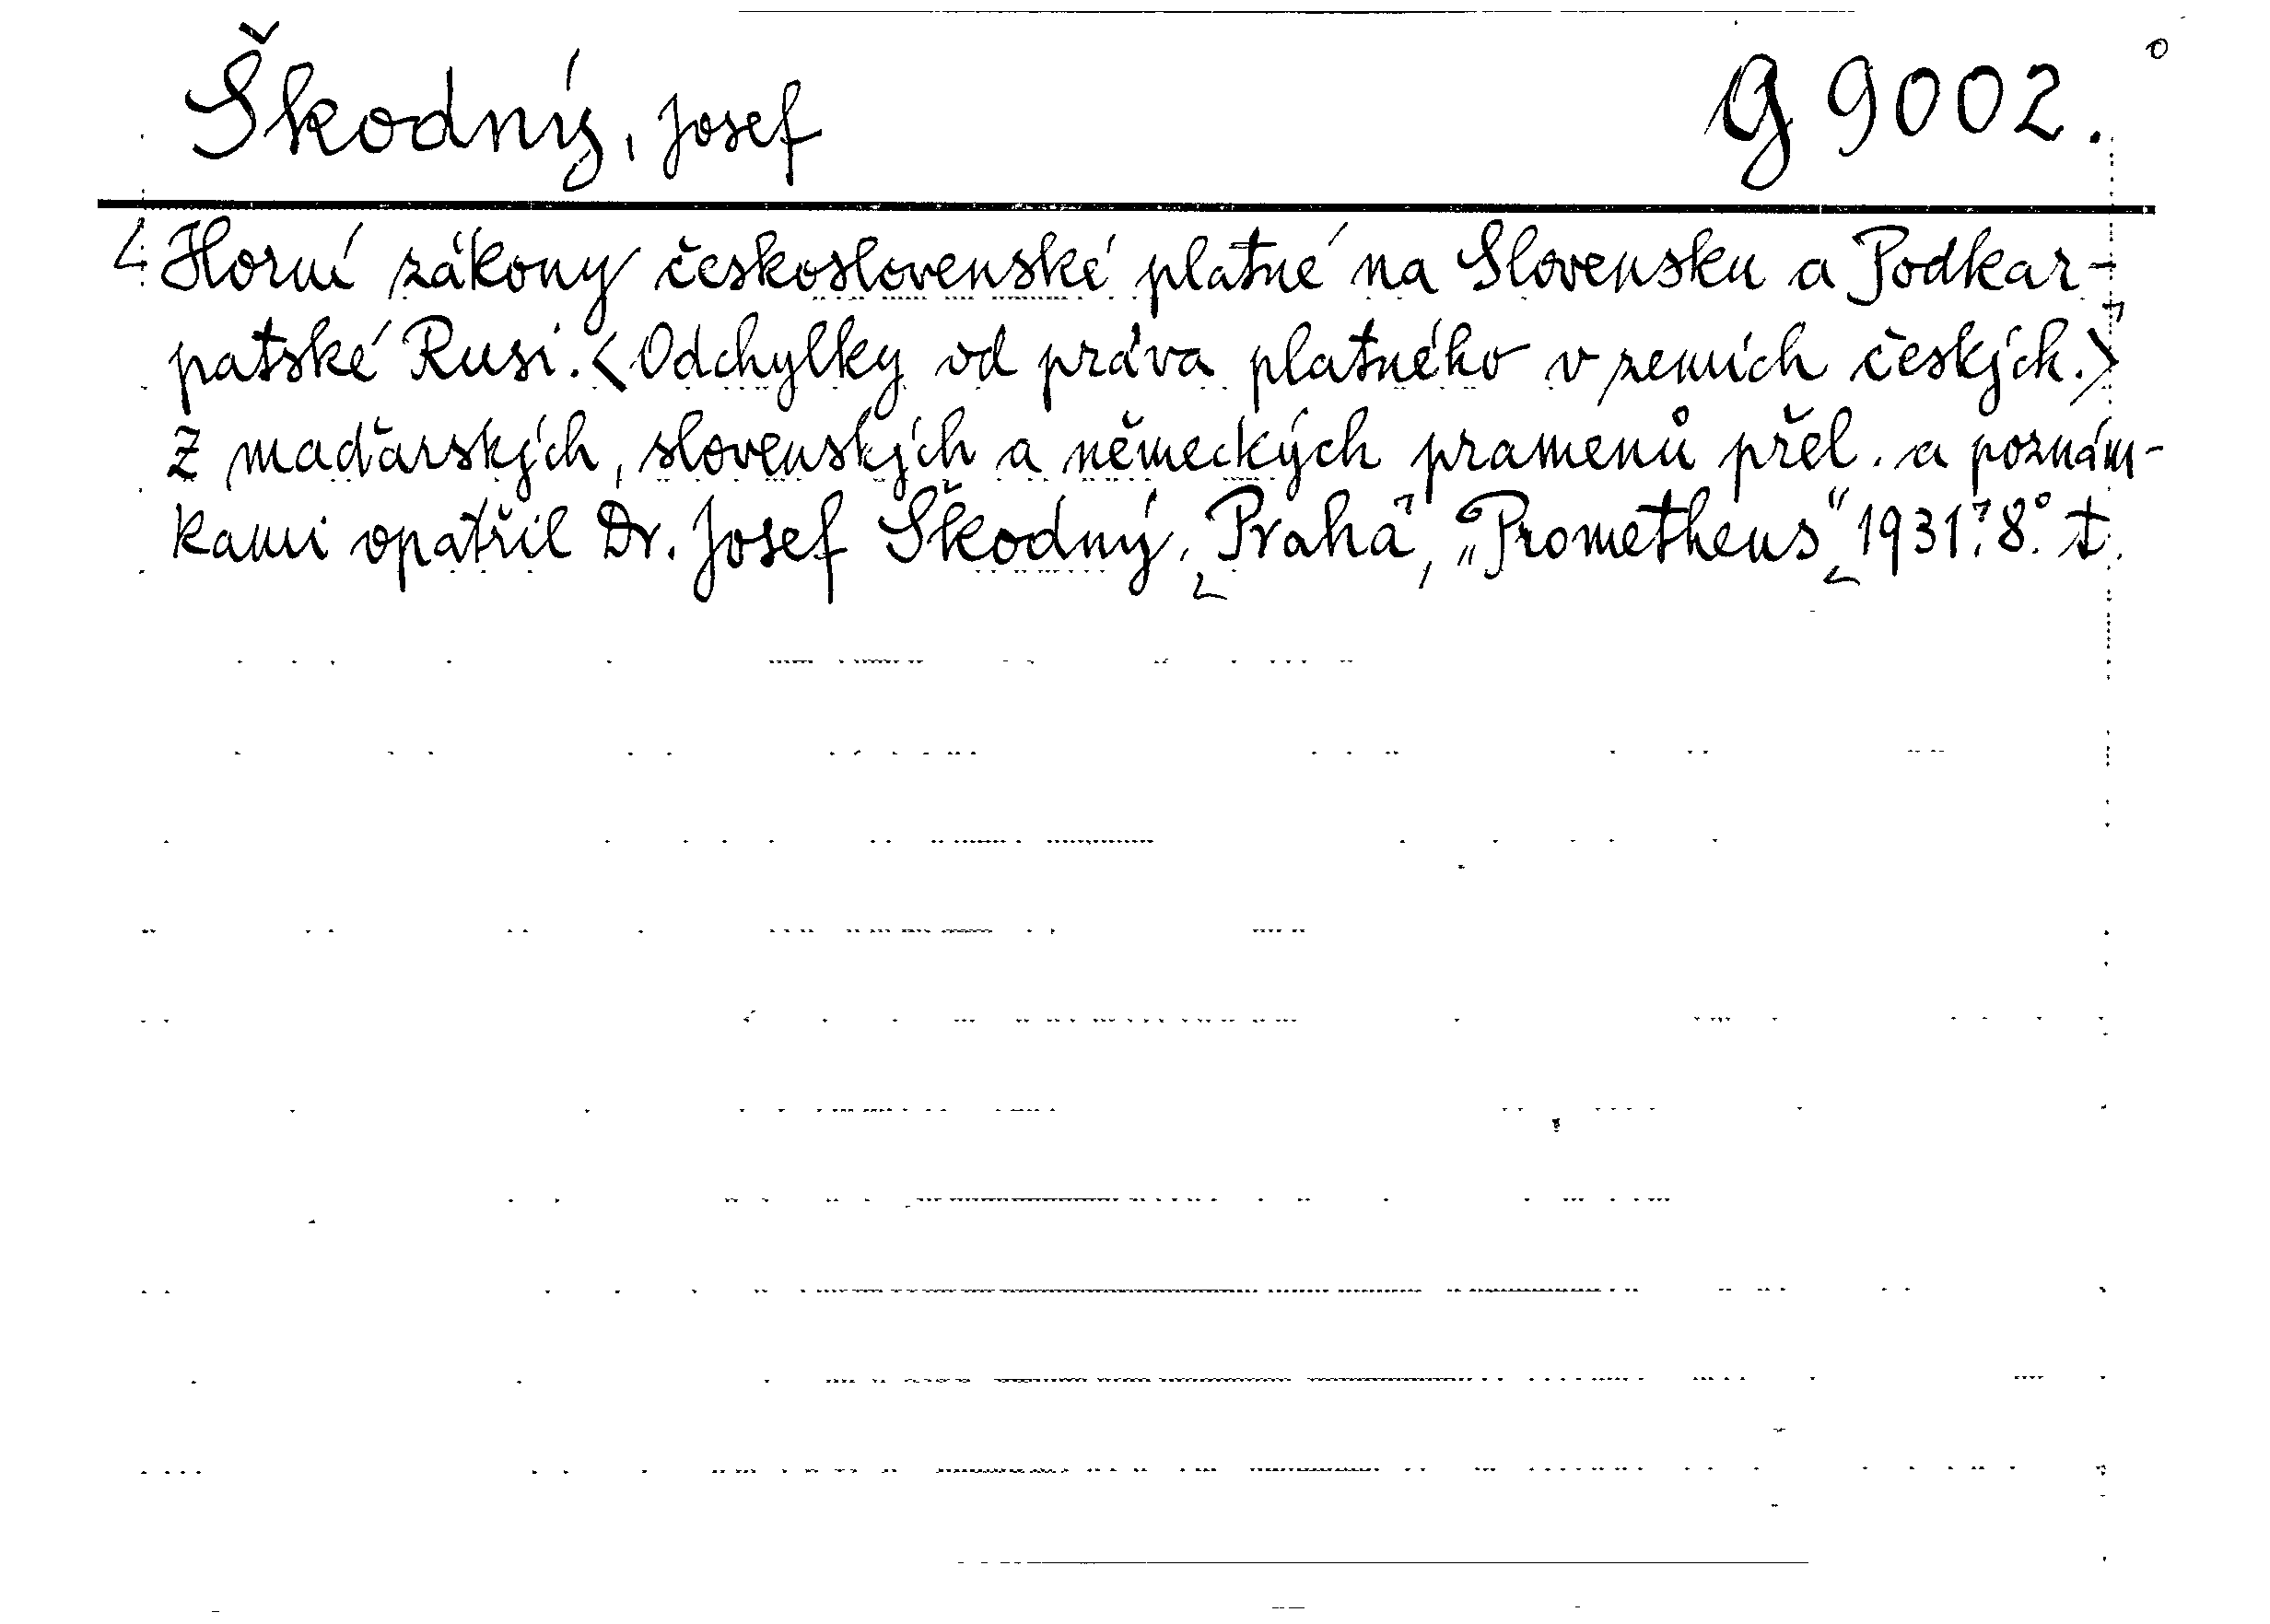 Škodný, Josef G 9002.
Horní zákony československé platné na Slovensku a Podkar-
patské Rusi. <Odchylky od práva platného v zemích českých.>
Z maďarských, slovenských a německých pramenů přel. a poznám-
kami opatřil Dr. Josef Škodný. Praha, „Prometheus“ 1931. 8° t.